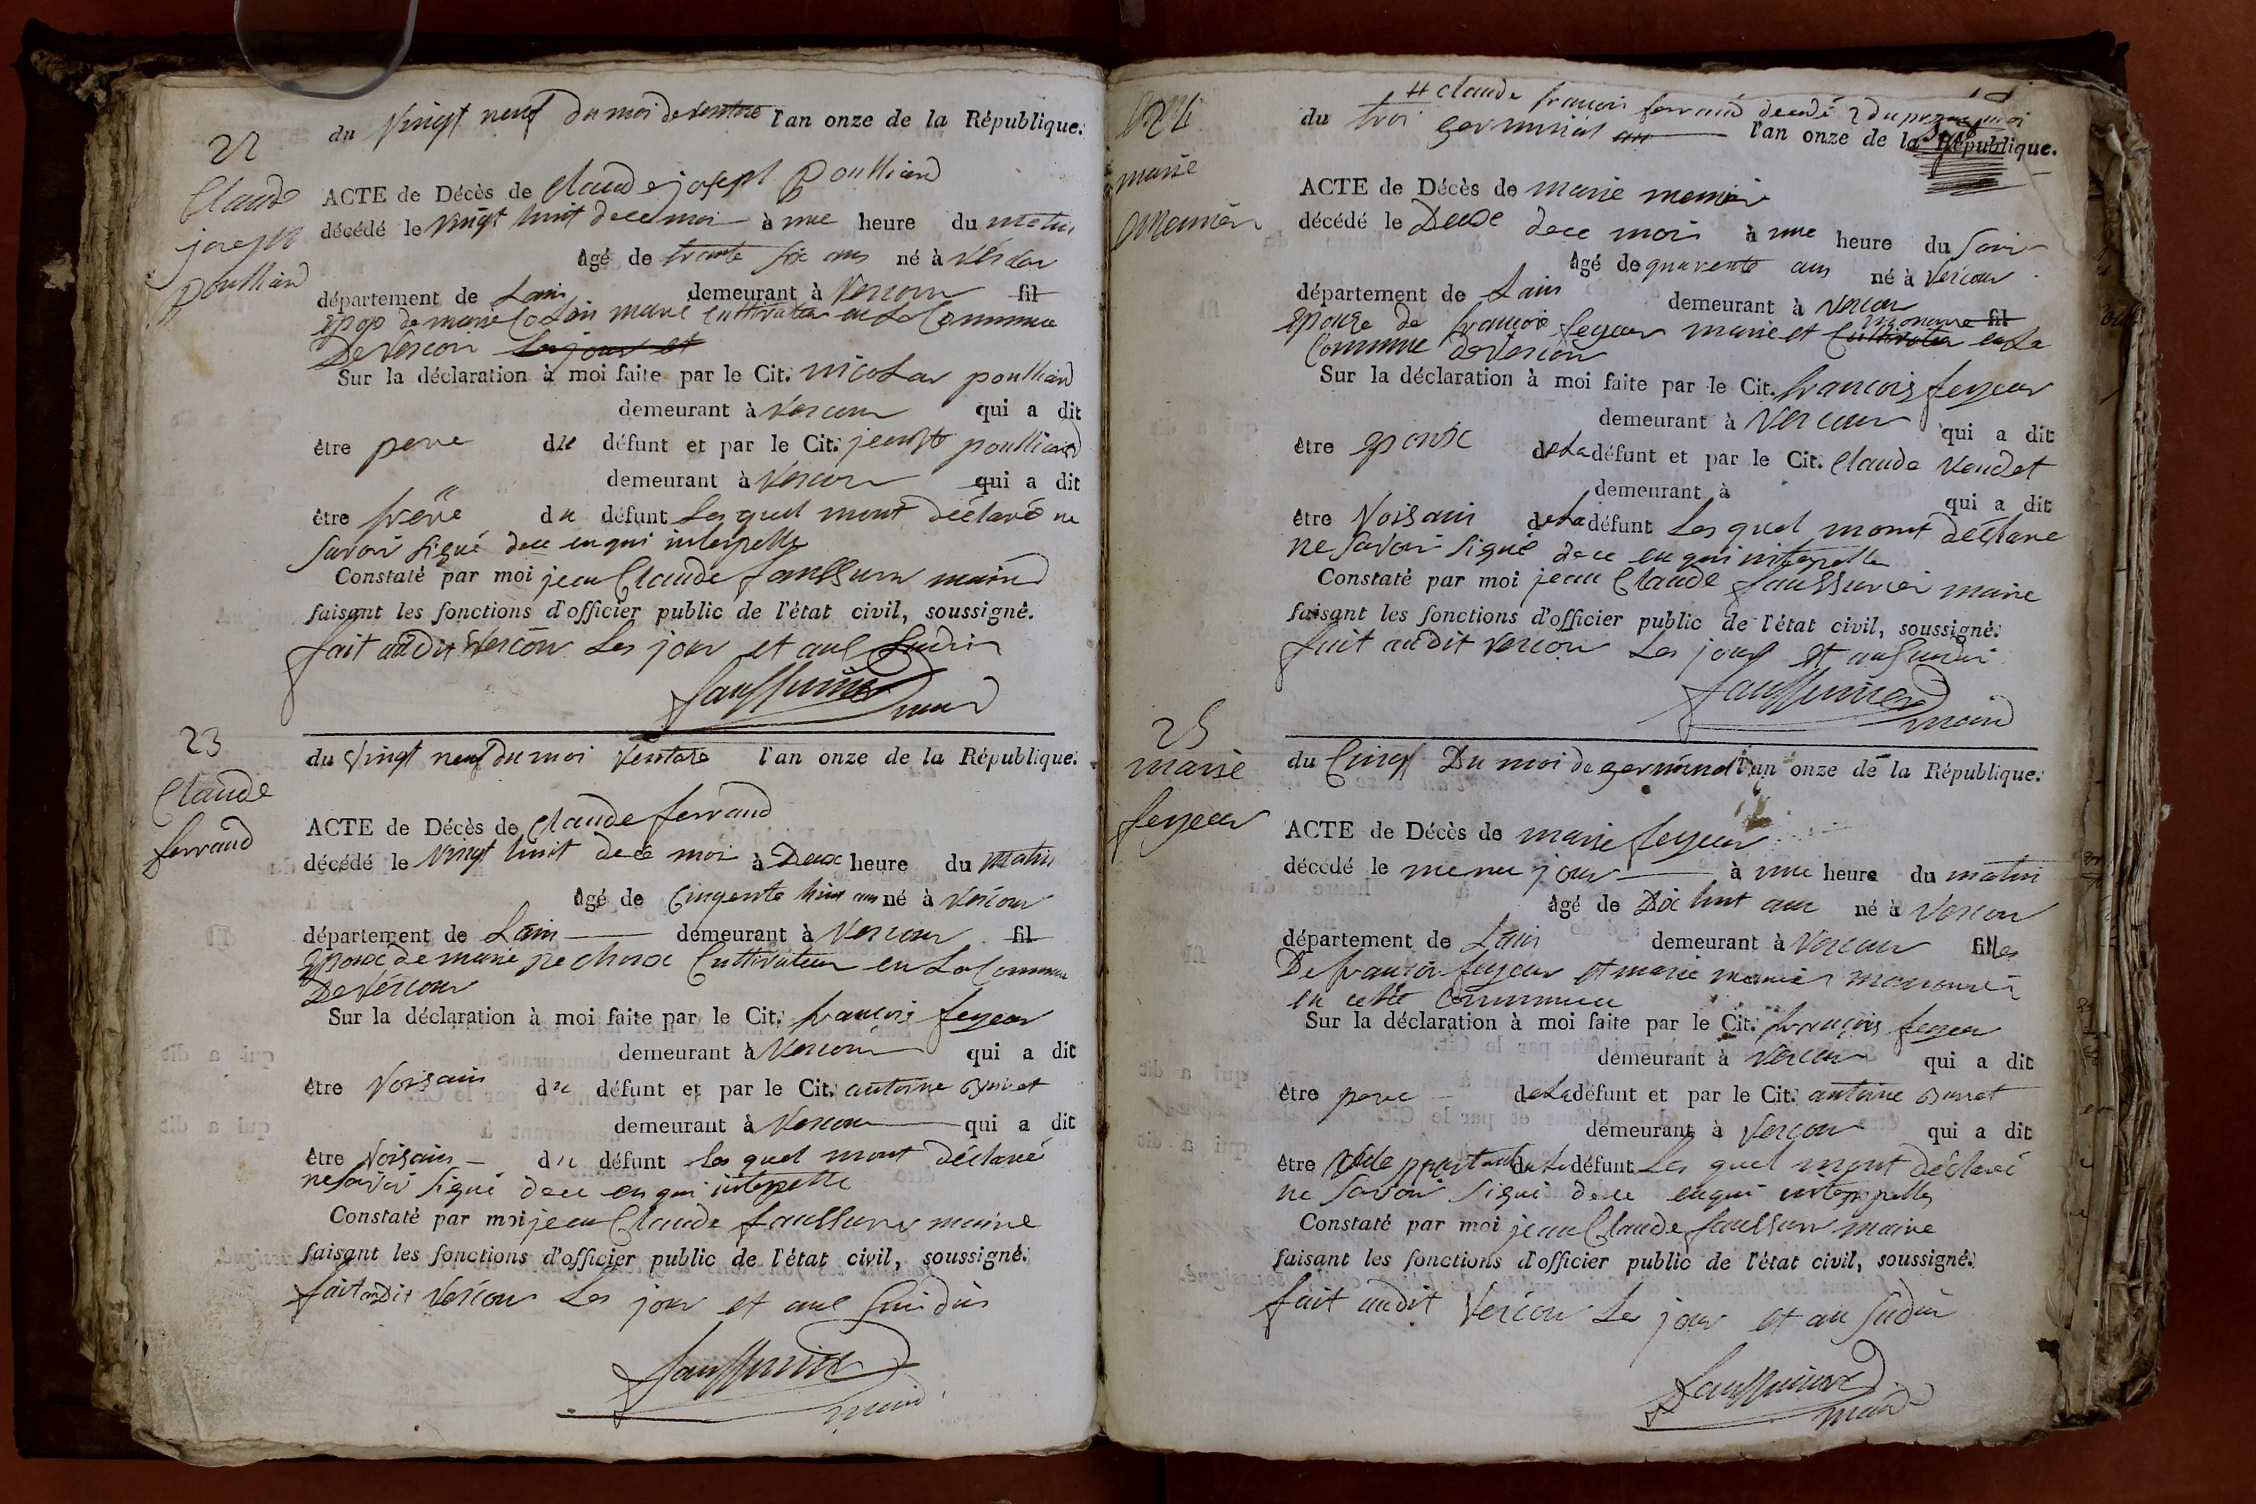 22
Claude
joseph
poulliard
du Vingt neuf du moi de ventose l'an onze de la République.
ACTE de Décès de Claude joseph poulliard
décédé le vingt huit de ce moi à une heure du matin
âgé de trente six ans né à Vercou
département de Lain demeurant à Vercou fil
epox de marie marié Cultivateur en La Commune
De Vercou Les jour et
Sur la déclaration à moi faite par le Cit. nicolas poulliard
demeurant à Vercou qui a dit
être pere du défunt et par le Cit. poulliard
demeurant à Vercou qui a dit
être frere du défunt Les quel mont déclaré ne
savoir signé dece enqui interpelle
Constaté par moi jean Claude maire
faisant les fonctions d'officier public de l'état civil, soussigné.
fait audit Vercou Les jour et an
23
Claude
ferrand
du Vingt neuf du moi Ventose l'an onze de la République.
ACTE de Décès de Claude ferrand
décédé le vingt huit de ce moi à Deux heure du matin
âgé de Cinqente huit ans né à Vercou
département de Lain demeurant à Vercou fil
epoux de marie pechoux Cultivateur en La Commune
De Vercou
Sur la déclaration à moi faite par le Cit. françois feyeux
demeurant à Vercou qui a dit
être Voisain du défunt et par le Cit. antoine
demeurant à Vercou qui a dit
être Voisain du défunt Les quel mont déclaré
ne savoir signé dece enqui interpelle
Constaté par moi jean Claude maire
faisant les fonctions d'officier public de l'état civil, soussigné.
fait audit Vercou Les jour et an
24
marie
meunier
claude françois ferrand decedé 2 du moi
du troi germinal an l'an onze de la République.
ACTE de Décès de marie meunier
décédé le Deux dece mois à une heure du soir
âgé de quarente ans né à Vercou
département de Lain demeurant à Vercou fil
epouse de françois feyeux marie et Cultivateur en La
Commune de Vercou
Sur la déclaration à moi faite par le Cit. françois feyeux
demeurant à Vercou qui a dit
être epoux deLa défunt et par le Cit. Claude Vendet
demeurant à qui a dit
être Voisain deLa défunt Les quel mont déclare
ne savoir signé dece enqui interpelle
Constaté par moi jean Claude maire
faisant les fonctions d'officier public de l'état civil, soussigné.
fait audit Vercou Les jour et an
25
marie
feyeux
du Cinq Du moi de germinal l'an onze de la République.
ACTE de Décès de marie feyeux
décédé le meme jour à une heure du matin
âgé de Dix huit ans né à Vercou
département de Lain demeurant à Vercou filles
De françois feyeux et marie meunier
en cette Commune
Sur la déclaration à moi faite par le Cit. françois feyeux
demeurant à Vercou qui a dit
être pere deLa défunt et par le Cit. antoine
demeurant à Vercou qui a dit
être deLa défunt Les quel mont déclaré
ne savoir signé dece enqui interpelle
Constaté par moi jean Claude maire
faisant les fonctions d'officier public de l'état civil, soussigné.
fait audit Vercou Les jour et an